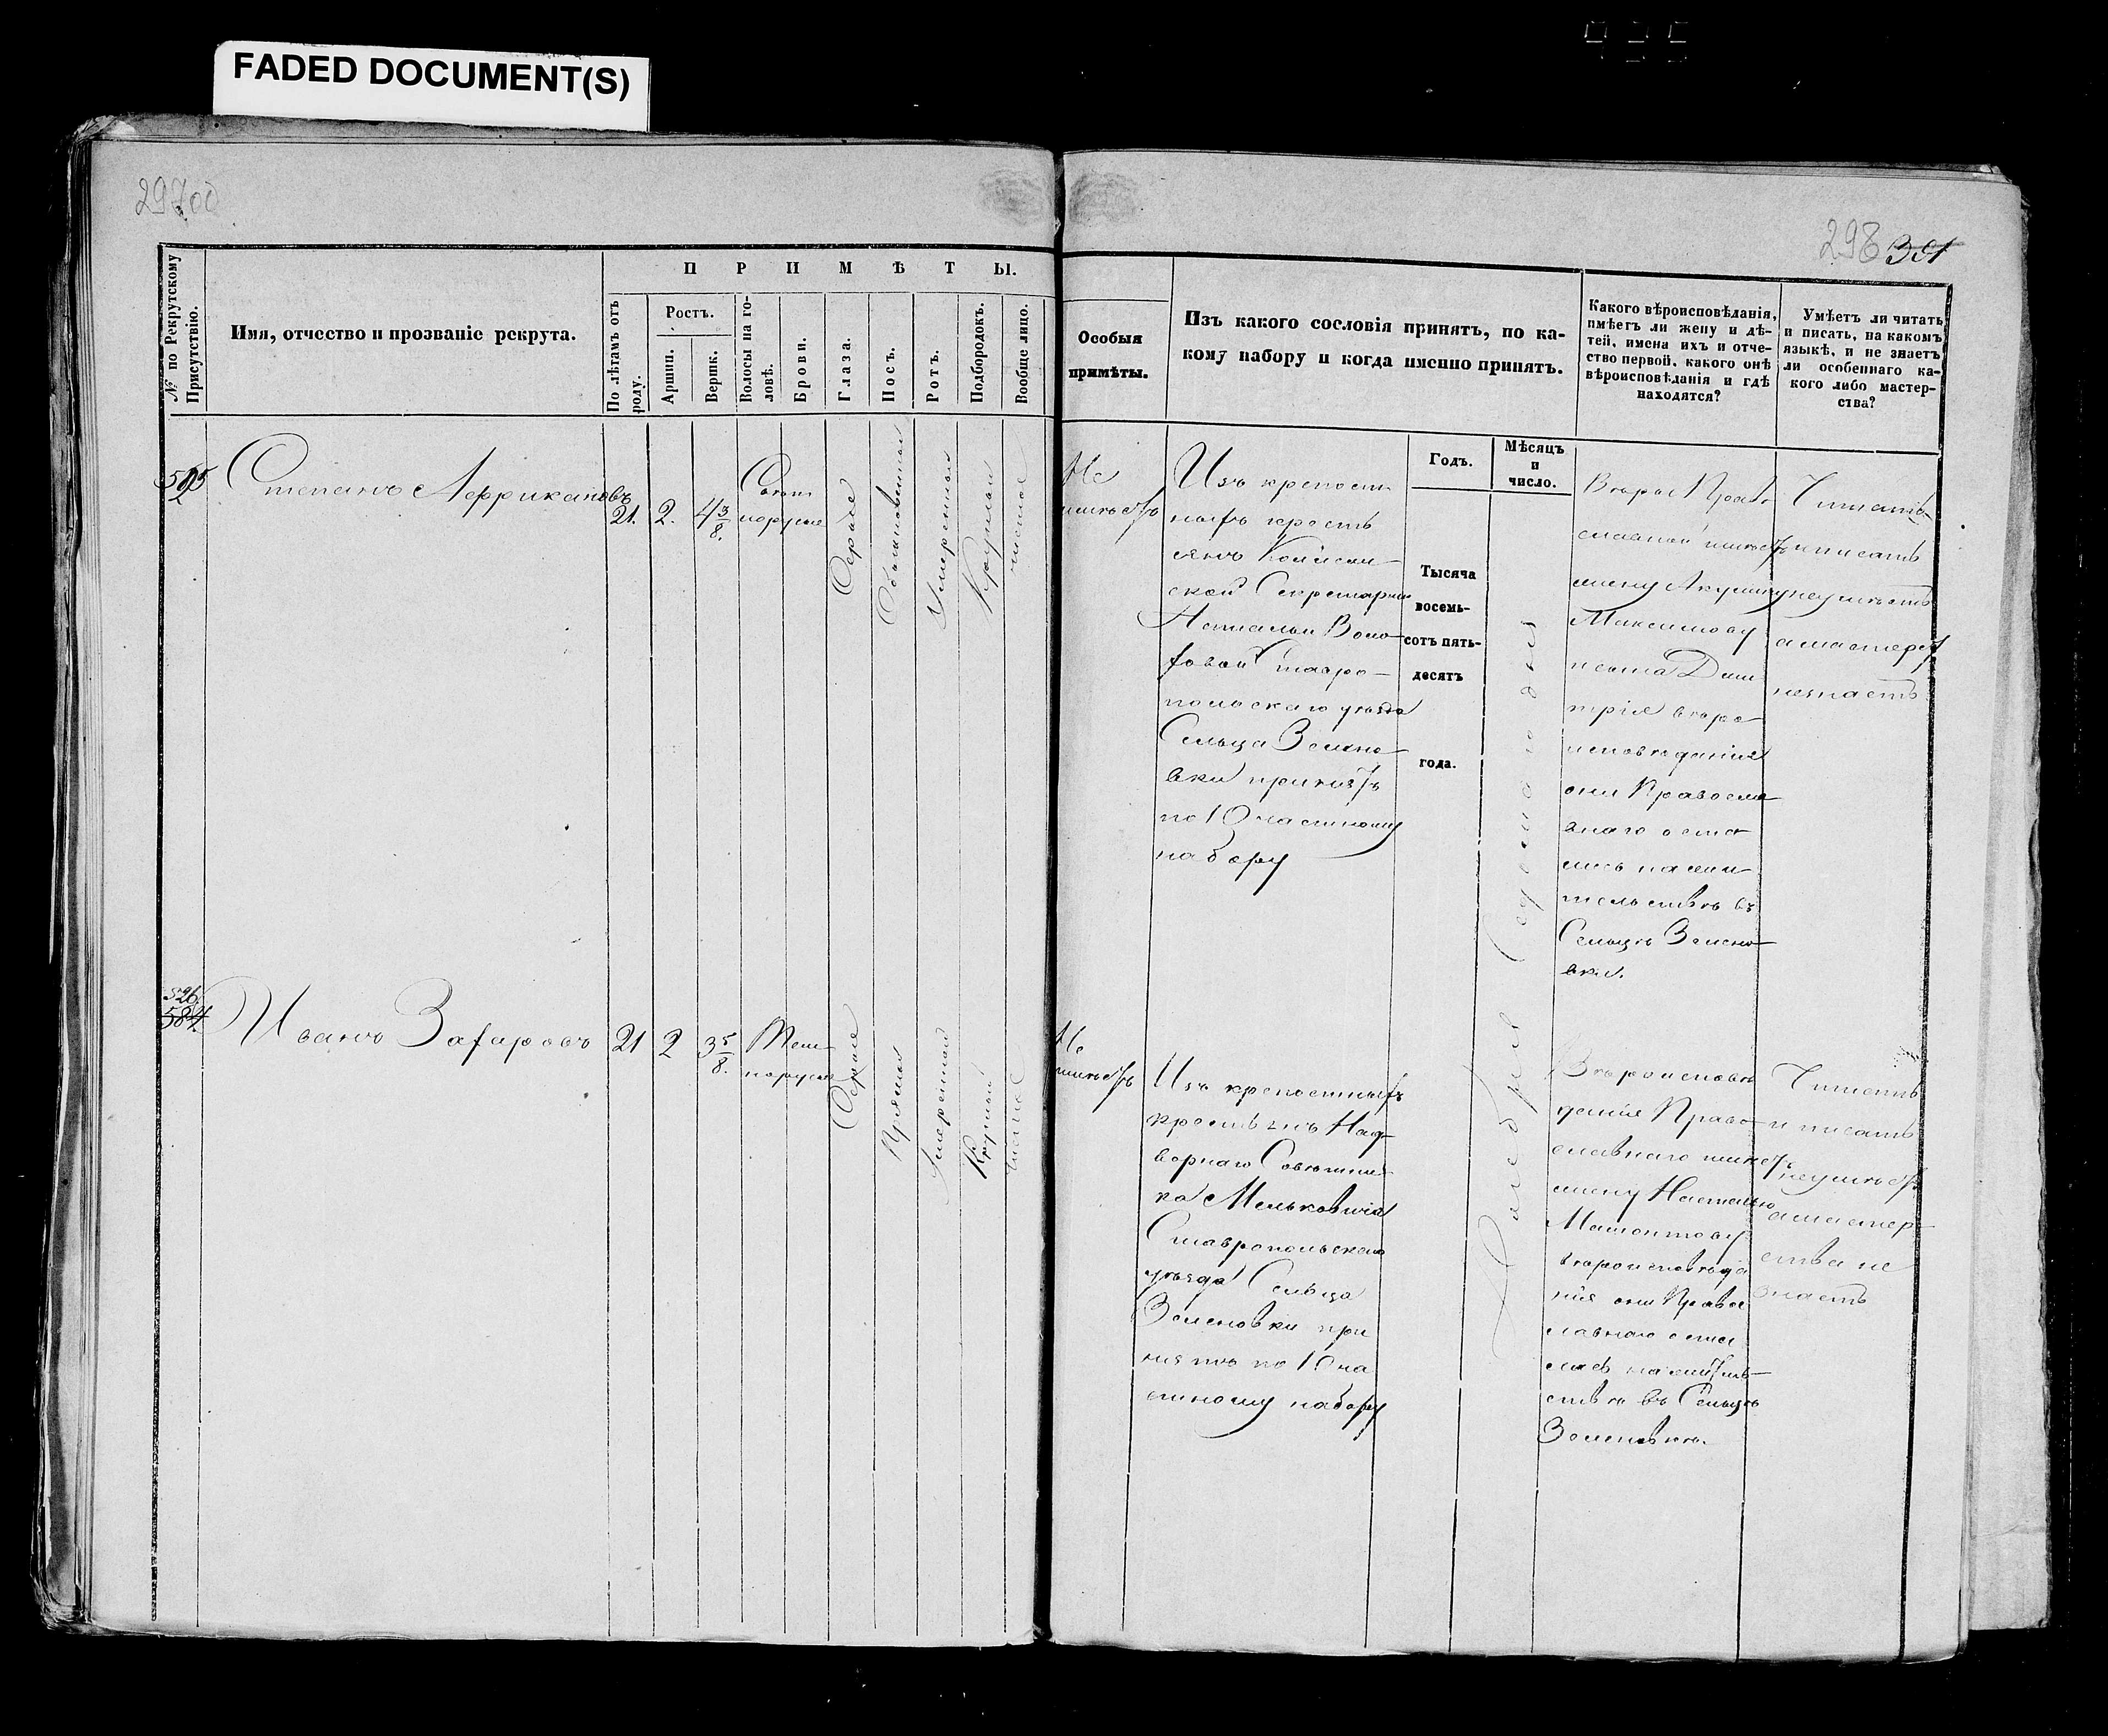 FADED DOCUMENT(S)
297об
298 301
№ по Рекрутскому Присутствію.
Имя, отчество и прозваніе рекрута.
ПРИМѢТЫ.
По лѣтамъ отъ роду.
Ростъ.
Аршин.
Вершк.
Волосы на головѣ.
Брови.
Глаза.
Носъ.
Ротъ.
Подбородокъ.
Вообще лицо.
Особыя
примѣты.
Изъ какого сословія принятъ, по ка-
кому набору и когда именно принятъ.
Какого вѣроисповѣданія,
имѣетъ ли жену и дѣ-
тей, имена ихъ и отче-
ство первой, какого онѣ
вѣроисповѣданія и гдѣ
находятся?
Умѣетъ ли читать
и писать, на какомъ
языкѣ, и не знаетъ
ли особеннаго ка-
кого либо мастер-
ства?
Годъ.
Мѣсяцъ
и
число.
Степанъ Аффрикановъ
21.
2.
4 3/8.
Свѣтл
норусые
Серые
Обыкновенный
Умеренный
Круглый
чистое
Не
имѣетъ
Изъ крепост
ныхъ кресть
янъ
ской Секретарши
Натальи Воло
ховой Ставро-
польскаго уѣзда
Сельца Зелено-
вки принятъ
по 10 частному
набору
Тысяча
восемь-
сотъ пять-
десятъ
года.
седьмаго дня
Веры Право
славной имѣетъ
жену Акулину
Максимову
и сына Дми
трія вѣро
исповѣданія
они Правосла
внаго оста
лись на жи
тельствѣ въ
Сельцѣ Зелено-
вки.
Читать
и писать
неумѣетъ
а мастерст
незнаетъ
526.
584.
Иванъ Захаровъ
21
2
3 5/8.
Темн
норусые
Серые
Прямой
Умеренный
Круглый
чистое
Не
имѣетъ
Изъ крепостныхъ
крестьянъ Над
ворнаго Советни
ка Мельковича
Ставропольскаго
уѣзда Сельца
Зеленовки при
нятъ по 10 ча
стному набору
Вѣроисповѣ
данія Право
славнаго имѣетъ
жену Наталью
Мамонтову
вѣроисповѣда
нія они Право
славнаго оста
лись на жител
ствѣ въ Сельцѣ
Зеленовкѣ.
Читать
и писать
неумѣетъ
а мастер
ства не
знаетъ